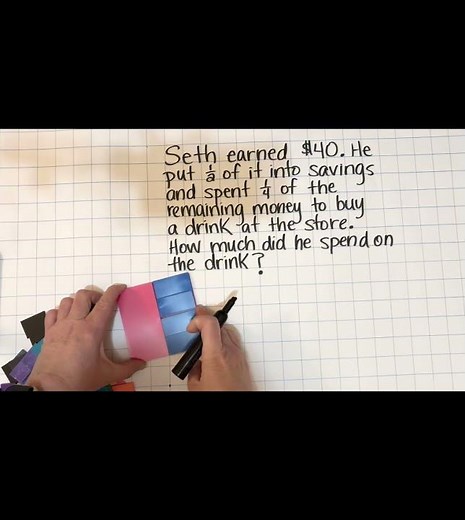 Seth earned $40. He
put 1/2 of it into savings
and spent 1/4 of the
remaining money to buy
a drink at the store.
How much did he spend on
the drink?